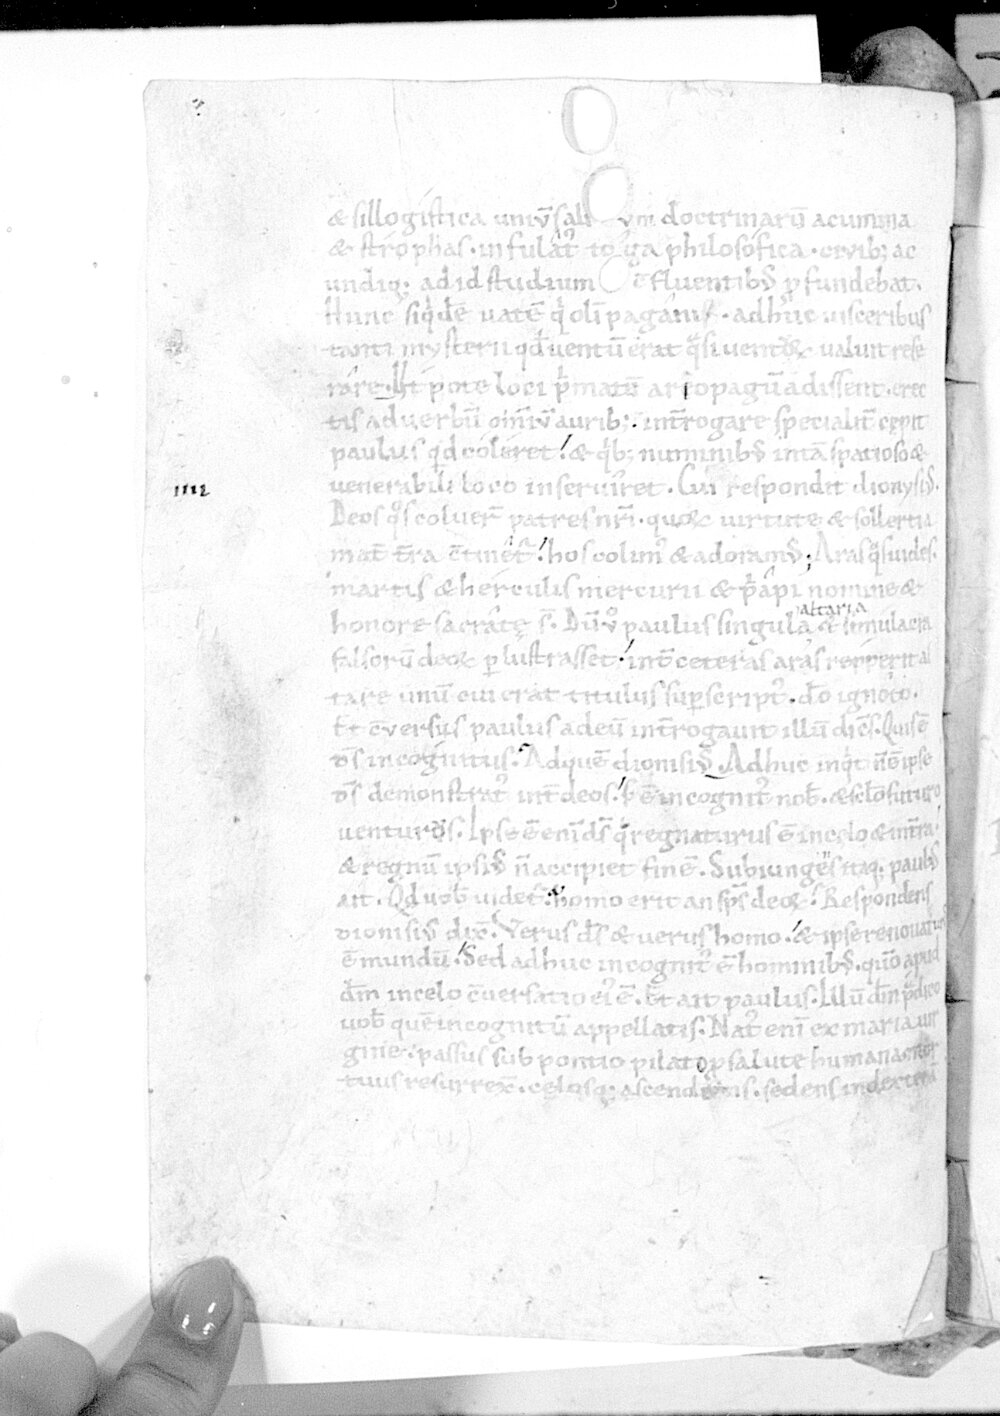 & sillogistica univ̄sali vm doctrinarū acumina
& strophas · infulat᷒ toga philosofica · civib; ac
undiq; ad id studium c̄fluentib᷒ p̄fundebat.
Hunc siqͥdē vatē qͥ olī paganis · adhuc visceribus
tanti mysterii qđ ventū erat qͣsi ventoꝝ valuit rese
rare. Ut pote loci pͥmatē ariopagū adissent · erec
tis ad verbū om̄iū aurib; · int̄rogare specialit̄ cępit
paulus qͥd coleret! & qͥb; numinib᷒ in tā spatioso &
venerabili loco inserviret. Cui respondit dionysi᷒.
IIII
Deos qͦs coluer̄ patres nr̄i · quoꝝ virtute & sollertia
mat̄ t̄ra c̄tinet᷒! hos colim᷒ & adoram᷒; Aras qͣs vides.
martis & herculis mercurii & pͥapi nomine &
altaria
honore sacratę s̄. Dū v̊ paulus singula & simulacra
falsorū deoꝝ ꝑlustrasset! int̄ ceteras aras repperit al
tare unū cui erat titulus sup̄script᷒ · dō ignoto.
Et c̄versus paulus ad eū int̄rogavit illū dicēs. Quis ē
d̄s incognitus. Ad quē dionisi᷒. Adhuc inqͥt n̄ ē ipse
d̄s demonstrat᷒ int̄ deos! s; ē incognit᷒ nob̄ · & sc̄lo futuro
venturus. Ipse ē eni d̄s qͥ regnaturus ē in celo & in t̄ra.
& regnū ipsi᷒ n̄ accipiet finē. Subiungēs itaq; paul᷒
ait. Qđ vob̄ videt᷒! homo erit an sp̄s deoꝝ! Respondens
dionisi᷒ dix̄. Verus d̄s & verus homo! & ipse renovatur᷒
ē mundū. Sed adhuc incognit᷒ ē hominib᷒ · quō apud
dm̄ in celo c̄versatio ei᷒ ē. Et ait paulus. Illū dm̄ pͣdico
vob̄ quē incognitū appellatis. Nat᷒ eni ex maria vir
gine · passus sub pontio pilato ꝓ salute humana mor
tuus resurrex̄ · celosq; ascendens · sedens in dextera